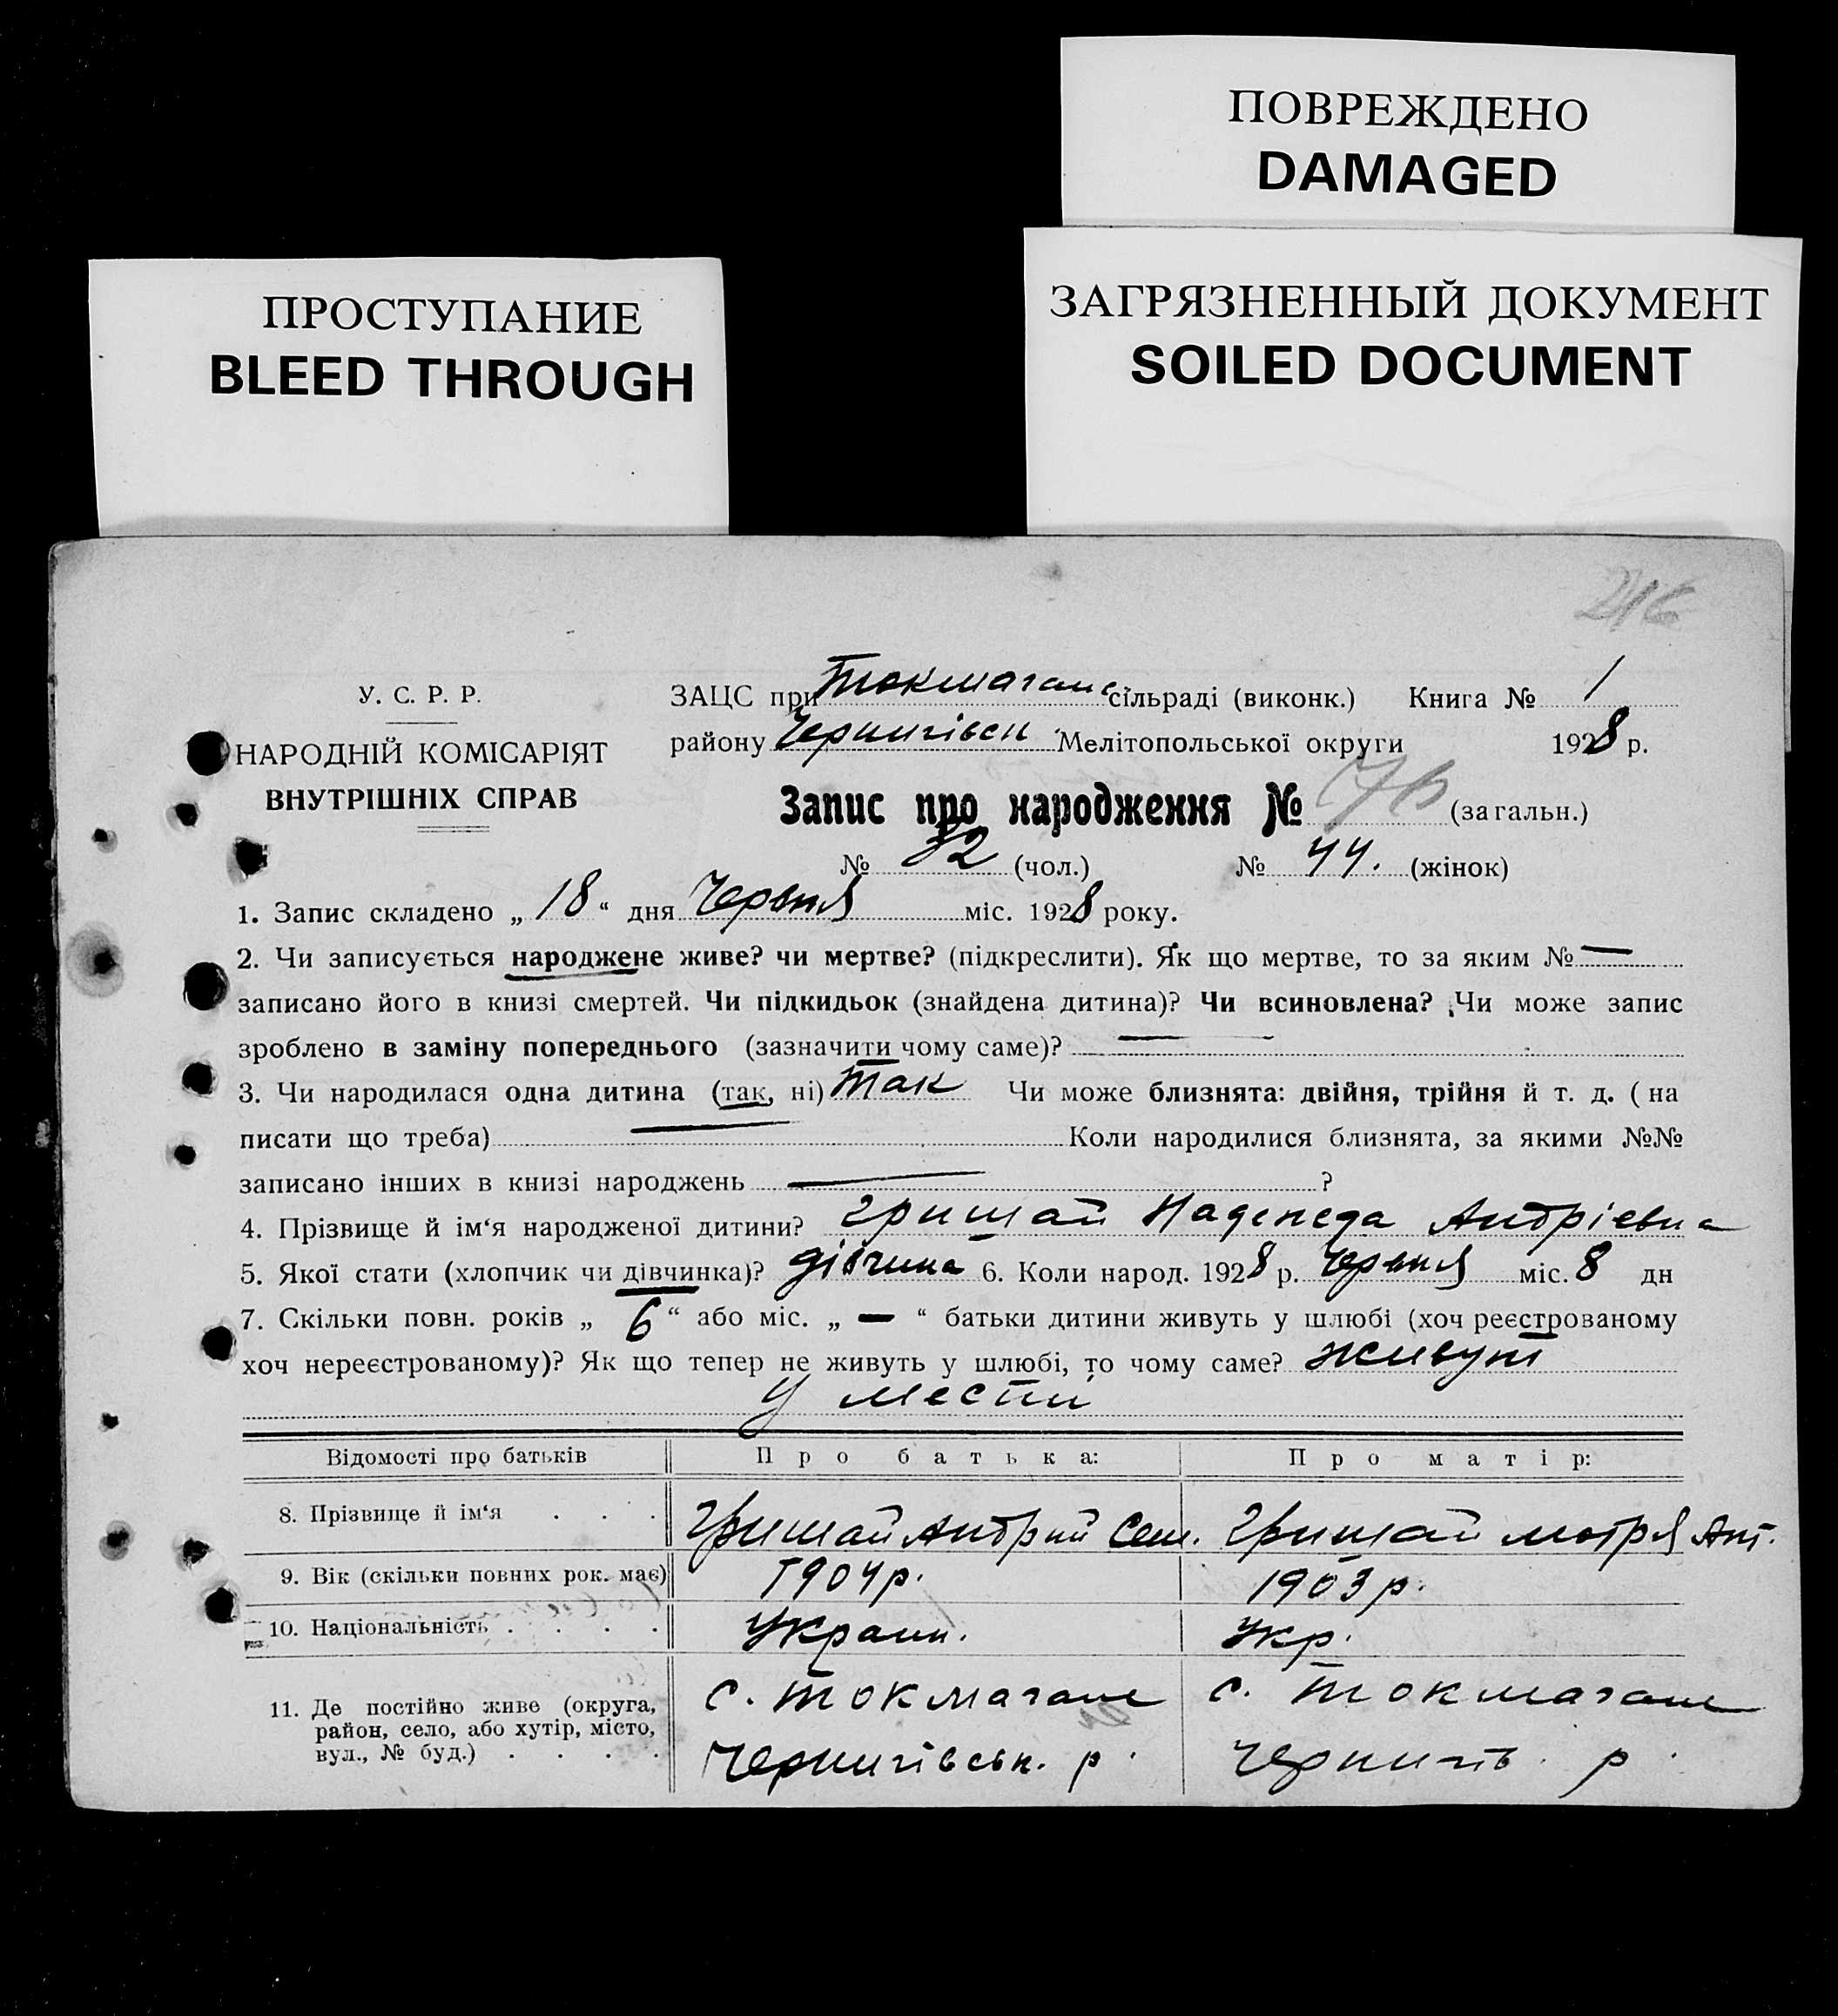 ПОВРЕЖДЕНО
DAMAGED
ПРОСТУПАНИЕ
BLEED THROUGH
ЗАГРЯЗНЕННЫЙ ДОКУМЕНТ
SOILED DOCUMENT
216
У. С. Р. Р.
НАРОДНІЙ КОМІСАРІЯТ
ВНУТРІШНІХ СПРАВ
ЗАЦС при Токмагане. сільраді (виконк.) Книга № 1
району Чернигівсн. Мелітопольської округи 1928 р.
Запис про народження № 76 (загальн.)
№ 32 (чол.) № 44. (жінок)
1. Запис складено „ 18 “ дня Червня міс. 1928 року.
2. Чи записується народжене живе? чи мертве? (підкреслити). Як що мертве, то за яким № —
записано його в книзі смертей. Чи підкидьок (знайдена дитина)? Чи всиновлена? Чи може запис
зроблено в заміну попереднього (зазначити чому саме)? —
3. Чи народилася одна дитина (так, ні) Так Чи може близнята: двійня, трійня й т. д. ( на
писати що треба) — Коли народилися близнята, за якими №№
записано інших в книзі народжень — ?
4. Прізвище й ім‘я народженої дитини? Гришай Надежда Андріевна
5. Якої стати (хлопчик чи дівчинка)? дівчина 6. Коли народ. 1928 р. Червня міс. 8 дн
7. Скільки повн. років „ 6 “ або міс. „ — “ батьки дитини живуть у шлюбі (хоч реєстрованому
хоч нереєстрованому)? Як що тепер не живуть у шлюбі, то чому саме? живут
у мести
Відомості про батьків Про батька: Про матір:
8. Прізвище й ім‘я . . . Гришай Андрий Сем. Гришай мотря Ант.
9. Вік (скільки повних рок. має) 1904р. 1903р.
10. Національність . . . . Украин. Укр.
11. Де постійно живе (округа, район, село, або хутір, місто, вул., № буд.) . . . .
с. Токмагане с. Токмагане
Чернигівськ. р. Чернигів. р.